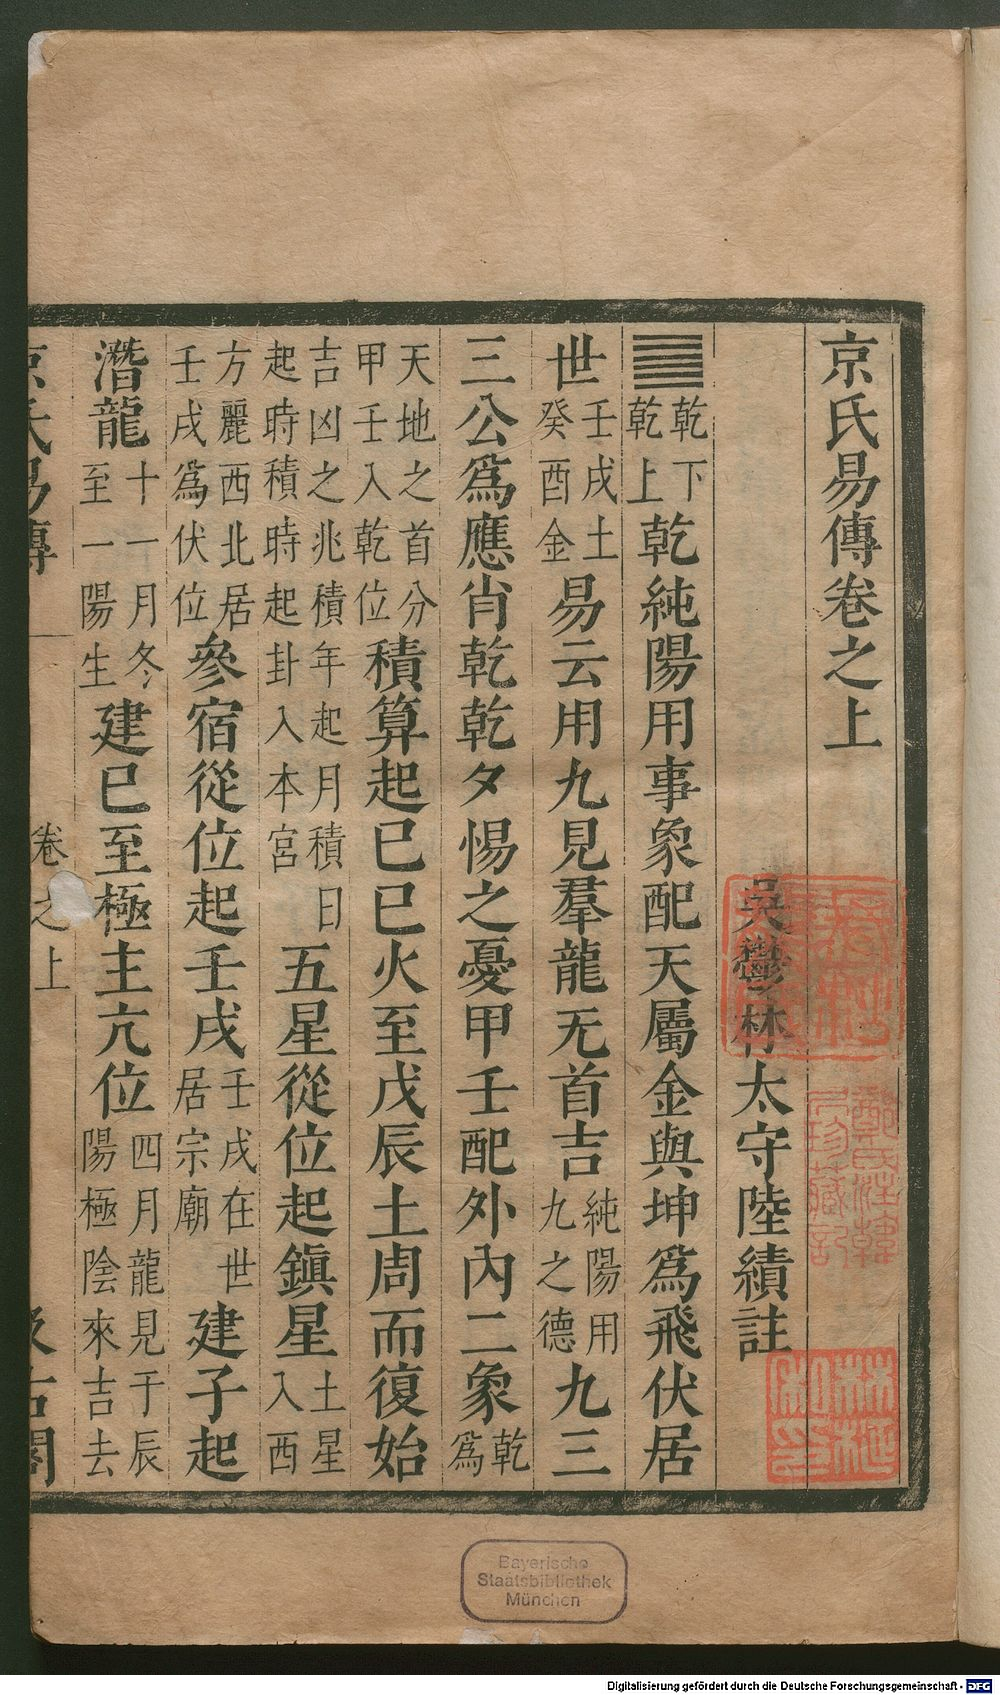 京氏易傳卷之上
吳鬱林太守陸績註
䷀乾下乾上乾純陽用事象配天屬金與坤爲飛伏居
世壬戌土癸酉金易云用九見羣龍无首吉純陽用九之德九三
三公爲應肖乾乾夕惕之憂甲壬配外內二象乾爲
天地之首分甲壬入乾位積算起己巳火至戊辰土周而復始
吉凶之兆積年起月積日起時積時起卦入本宮五星從位起鎮星土星入西
方麗西北居壬戌爲伏位參宿從位起壬戌壬戌在世居宗廟建子起
潛龍十一月冬至一陽生建巳至極主亢位四月龍見于辰陽極陰來吉去
京氏易傳
卷之上
汲古閣
鄭氏注韓居珍藏記
Bayerische
Staatsbibliothek
München
Digitalisierung gefördert durch die Deutsche Forschungsgemeinschaft - DFG